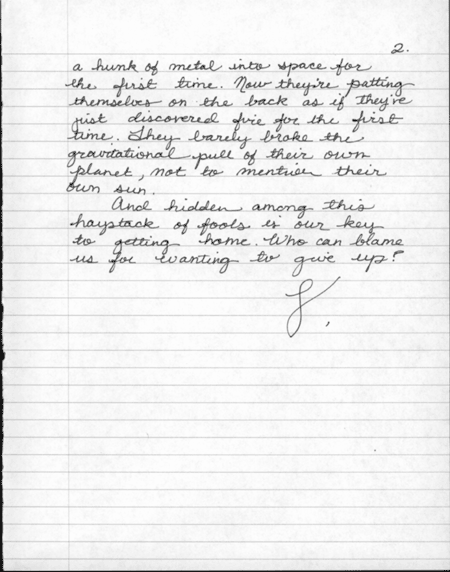 2.
a hunk of metal into space for
the first time. Now they're patting
themselves on the back as if they've
just discovered fire for the first
time. They barely broke the
gravitational pull of their own
planet, not to mention their
own sun.
And hidden among this
haystack of fools is our key
to getting home. Who can blame
us for wanting to give up?